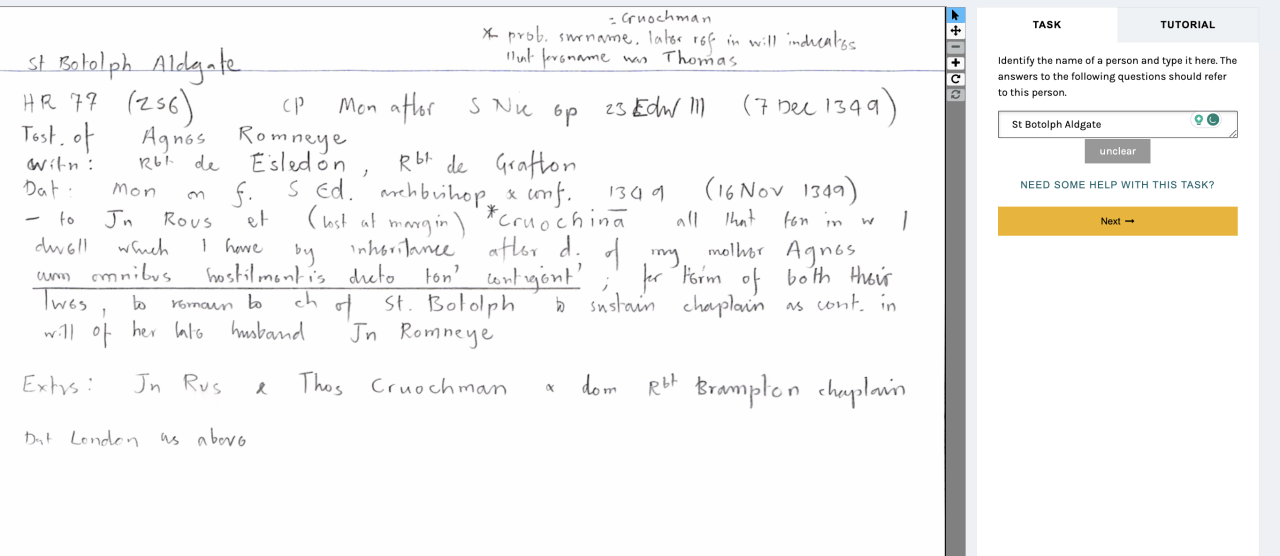 = Cruochman
* prob. surname, later ref in will indicates
that forename was Thomas
St Botolph Aldgate
HR 77 (256) CP Mon after S Nic ep 23 Edw III (7 Dec 1349)
Test. of Agnes Romneye
Witn: Rbt de Esledon, Rbt de Grafton
Dat: Mon on f. S Ed. archbishop & conf. 1349 (16 Nov 1349)
– to Jn Rous et (lost at margin) *Cruochina all that ten in w I
dwell which I have by inheritance after d. of my mother Agnes
cum omnibus hostilmentis dicto ten' contigent'; for term of both their
lives, to remain to ch of St. Botolph to sustain chaplain as cont. in
will of her late husband Jn Romneye
Extrs: Jn Rus & Thos Cruochman & dom Rbt Brampton chaplain
Dat London as above
TASK
TUTORIAL
Identify the name of a person and type it here. The
answers to the following questions should refer
to this person.
St Botolph Aldgate
unclear
NEED SOME HELP WITH THIS TASK?
Next →